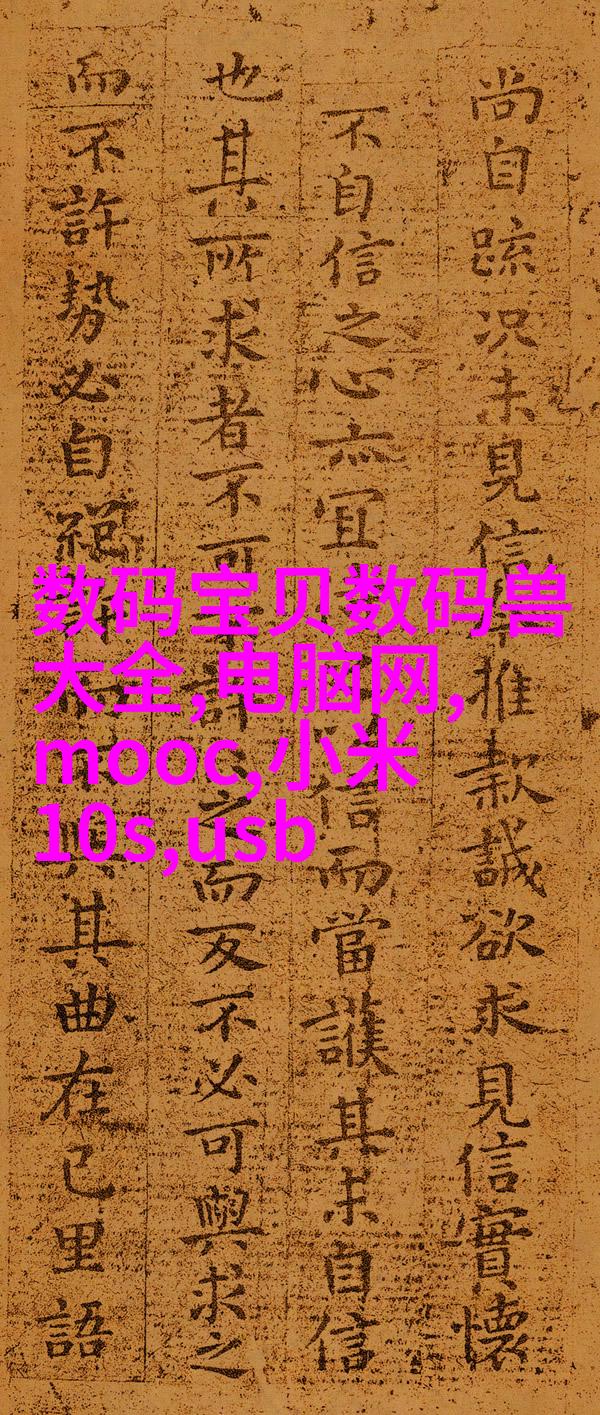 尚自踈况未見信推款誠欲求見信實懷
不自信之心亦宜信而當護其未自信
也其所求者不可許之而反不必可與求之
而不許勢必自絕與其曲在己里語
数码宝贝数码兽
大全,电脑网,
mooc,小米
10s,usb